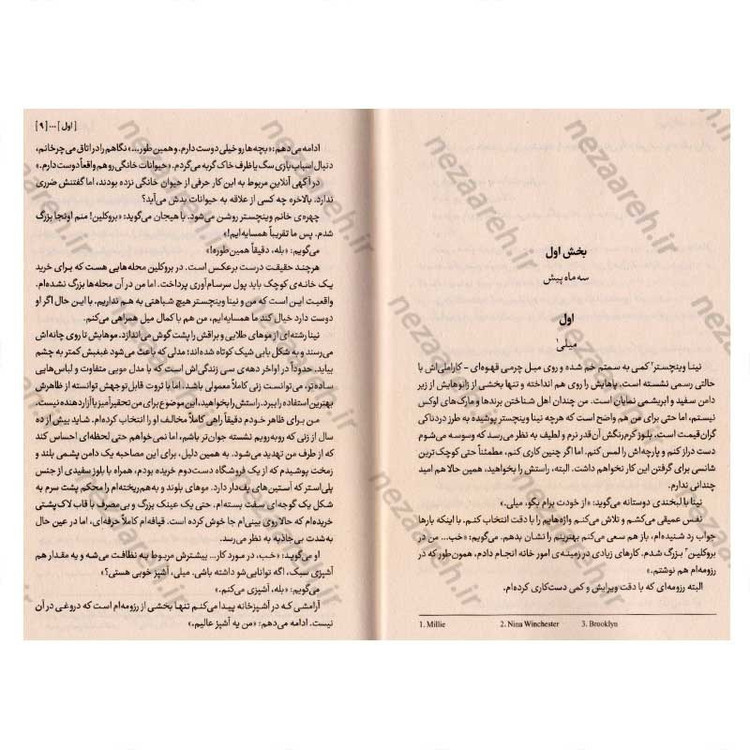 بخش اول
سه ماه پیش
اول
میلی¹
نینا وینچستر² کمی به سمتم خم شده و روی مبل چرمی قهوه‌ای - کاراملی‌اش با
حالتی رسمی نشسته است. پاهایش را روی هم انداخته و تنها بخشی از زانوهایش از زیر
دامن سفید و ابریشمی نمایان است. من چندان اهل شناختن برندها و مارک‌های لوکس
نیستم، اما حتی برای من هم واضح است که هرچه نینا وینچستر پوشیده به طرز دردناکی
گران‌قیمت است. بلوز کرم‌رنگش آن‌قدر نرم و لطیف به نظر می‌رسد که وسوسه می‌شوم
دست دراز کنم و پارچه‌اش را لمس کنم. اما اگر چنین کاری کنم، مطمئناً حتی کوچک‌ترین
شانسی برای گرفتن این کار نخواهم داشت. البته، راستش را بخواهید، همین حالا هم امید
چندانی ندارم.
نینا با لبخندی دوستانه می‌گوید: «از خودت برام بگو، میلی.»
نفس عمیقی می‌کشم و تلاش می‌کنم واژه‌هایم را با دقت انتخاب کنم. با اینکه بارها
جواب رد شنیده‌ام، باز هم سعی می‌کنم بهترینم را نشان بدهم. می‌گویم: «خب... من در
بروکلین³ بزرگ شدم. کارهای زیادی در زمینه‌ی امور خانه انجام دادم، همون‌طور که در
رزومه‌ام هم نوشتم.»
البته رزومه‌ای که با دقت ویرایش و کمی دست‌کاری کرده‌ام.
1. Millie 2. Nina Winchester 3. Brooklyn
[اول] ... [۹]
ادامه می‌دهم: «بچه‌ها رو خیلی دوست دارم. و همین طور...» نگاهم را در اتاق می‌چرخانم،
دنبال اسباب‌بازی سگ یا ظرف خاک گربه می‌گردم. «حیوانات خانگی رو هم واقعاً دوست دارم.»
در آگهی آنلاین مربوط به این کار حرفی از حیوان خانگی نزده بودند، اما گفتنش ضرری
ندارد. بالاخره چه کسی از علاقه به حیوانات بدش می‌آید؟
چهره‌ی خانم وینچستر روشن می‌شود. با هیجان می‌گوید: «بروکلین! منم اونجا بزرگ
شدم. پس ما تقریباً همسایه‌ایم!»
می‌گویم: «بله، دقیقاً همین طوره!»
هرچند حقیقت درست برعکس است. در بروکلین محله‌هایی هست که برای خرید
یک خانه‌ی کوچک باید پول سرسام‌آوری پرداخت. اما من در آن محله‌ها بزرگ نشده‌ام.
واقعیت این است که من و نینا وینچستر هیچ شباهتی به هم نداریم. با این حال اگر او
دوست دارد خیال کند ما همسایه‌ایم، من هم با کمال میل همراهی می‌کنم.
نینا رشته‌ای از موهای طلایی و براقش را پشت گوش می‌اندازد. موهایش تا روی چانه‌اش
می‌رسند و به شکل بابی شیک کوتاه شده‌اند؛ مدلی که باعث می‌شود غبغبش کمتر به چشم
بیاید. حدوداً در اواخر دهه‌ی سی زندگی‌اش است که با مدل مویی متفاوت و لباس‌هایی
ساده‌تر، می‌توانست زنی کاملاً معمولی باشد. اما با ثروت قابل توجهش توانسته از ظاهرش
بهترین استفاده را ببرد. راستش را بخواهید، این موضوع برای من تحقیرآمیز یا آزاردهنده نیست.
من برای ظاهر خودم دقیقاً راهی کاملاً مخالف او را انتخاب کرده‌ام. شاید بیش از ده
سال از زنی که روبه‌رویم نشسته جوان‌تر باشم، اما نمی‌خواهم حتی لحظه‌ای احساس کند
که از طرف من تهدید می‌شود. به همین دلیل، برای این مصاحبه یک دامن پشمی بلند و
زمخت پوشیدم که از یک فروشگاه دست‌دوم خریده بودم، همراه با بلوز سفیدی از جنس
پلی‌استر که آستین‌های پف‌دار دارد. موهای بلوند و به‌هم‌ریخته‌ام را محکم پشت سرم به
شکل یک گوجه‌ای سفت بسته‌ام. حتی یک عینک بزرگ و بی‌مصرف با قاب لاک‌پشتی
خریده‌ام که حالا روی بینی‌ام جا خوش کرده است. قیافه‌ام کاملاً حرفه‌ای، اما در عین حال
به‌شدت بی‌جاذبه به نظر می‌رسد.
او می‌گوید: «خب، در مورد کار... بیشترش مربوط به نظافت می‌شه و یه مقدار هم
آشپزی سبک، اگه توانایی‌شو داشته باشی. میلی، آشپز خوبی هستی؟»
می‌گویم: «بله، آشپزی می‌کنم.»
آرامشی که در آشپزخانه پیدا می‌کنم تنها بخشی از رزومه‌ام است که دروغی در آن
نیست. ادامه می‌دهم: «من یه آشپز عالیم.»
nezaareh.ir
nezaareh.ir
nezaareh.ir
nezaareh.ir
nezaareh.ir
nezaareh.ir